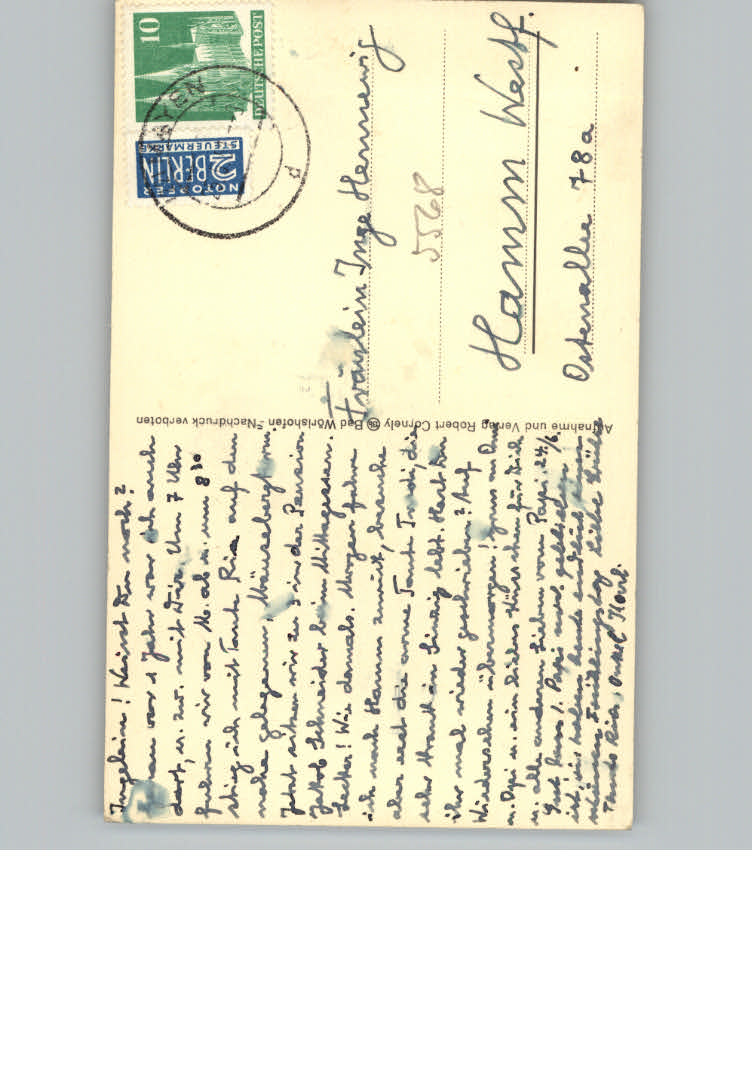 Ingelein! Weisst Du noch?
Genau vor 1 Jahr war ich auch
dort, u. zw. mit Dir. Um 7 Uhr
fuhren wir von M. ab u. um 8³⁰
stieg ich mit Tante Ria auf den
nahe gelegenen Mäuseberg
Jetzt sitzen wir zu 3 in der Pension
Jakob Schneider beim Mittagessen.
Lecker! Wie damals. Morgen fahre
ich nach Hamm zurück, besuche
aber erst die arme Tante Trudi, die
sehr krank in Sinzig lebt. Hast Du
ihr mal wieder geschrieben? Auf
Wiedersehen übermorgen! Gruss an Oma
u. Opi u. ein liebes Küsschen für Dich
u. alle anderen Lieben vom Papi 24/6.
Gut dass 1. Papi mal
ist, wir haben heute endlich einen
schönen Frühlingstag Liebe Grüße
Tante Ria, Onkel Karl.
Aufnahme und Verlag Robert Cornely Bad Wörishofen - Nachdruck verboten
10
DEUTSCHE POST
NOTOPFER
2 BERLIN
STEUERMARKE
d
Fräulein Inge Hennewig
5568
Hamm Westf.
Ostenallee 78a